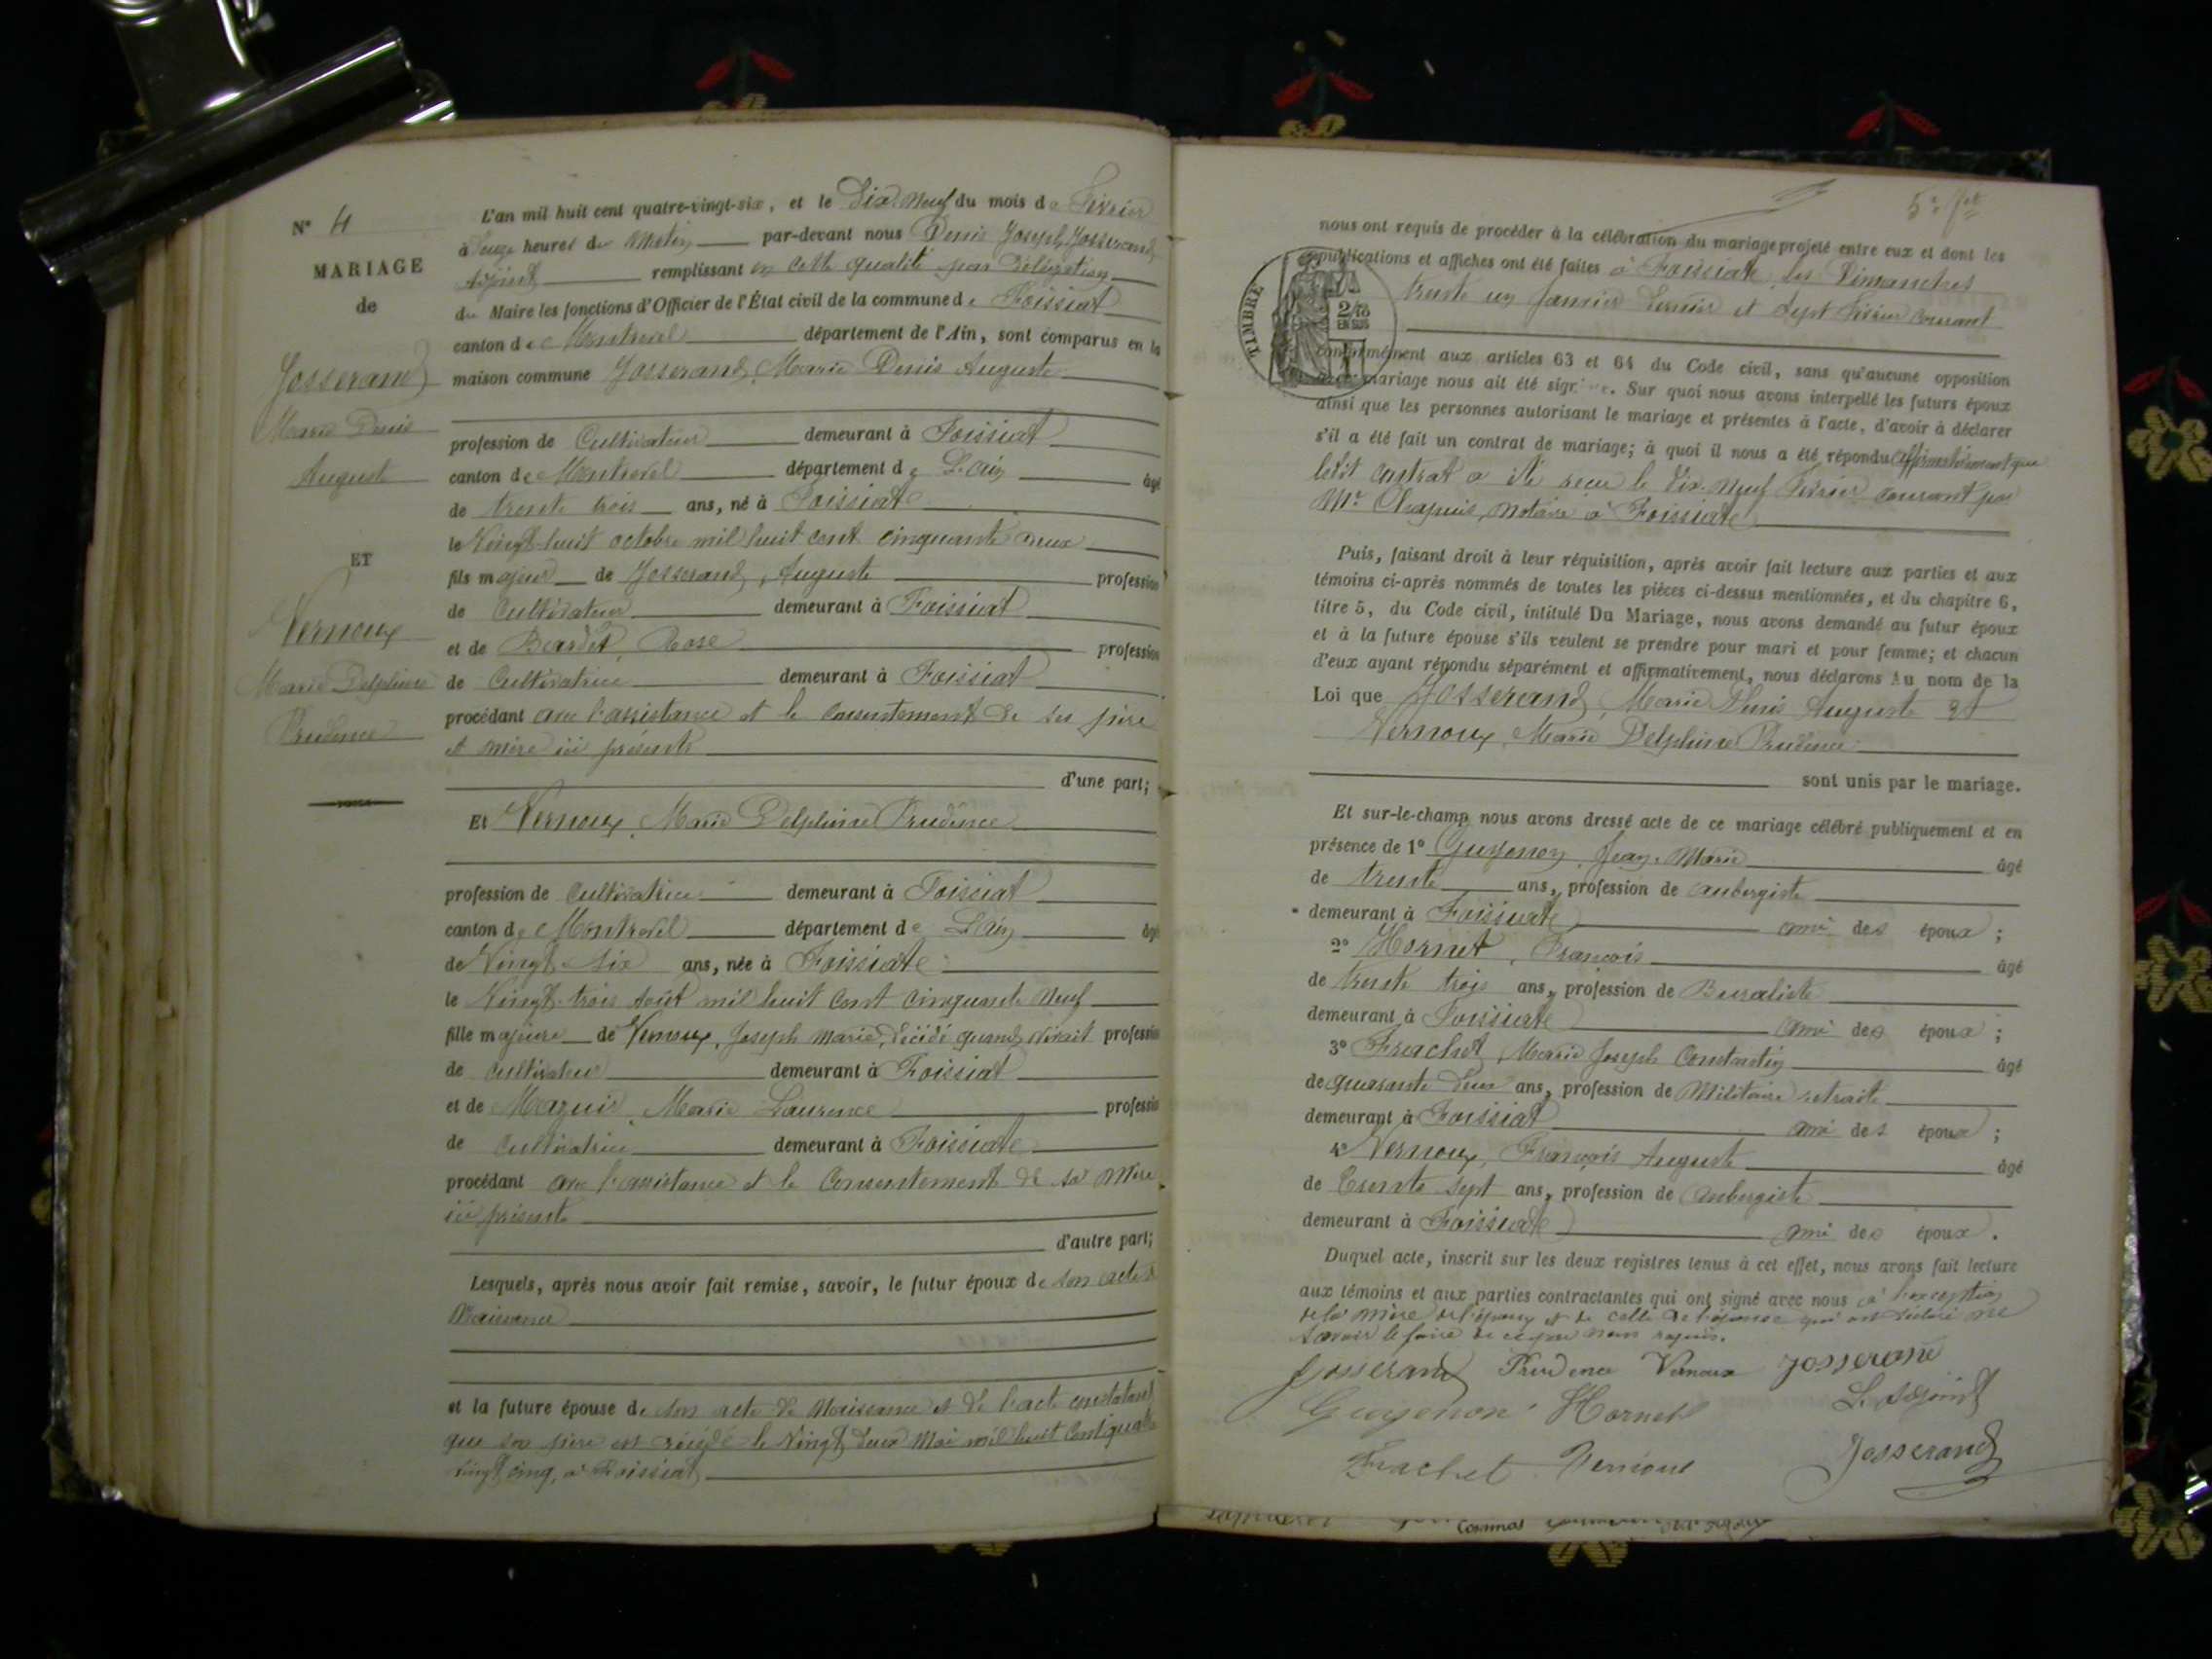 N° 4
MARIAGE
de
Josserand
Marie Denis
Auguste
ET
Vernoux
Marie Delphine
Prudence
L'an mil huit cent quatre-vingt-six, et le Dix neuf du mois de Février
à onze heures du matin par-devant nous Denis Joseph Josserand
Adjoint remplissant en cette qualité par délégation
du Maire les fonctions d'Officier de l'État civil de la commune de Foissiat
canton de Montrevel département de l'Ain, sont comparus en la
maison commune Josserand, Marie Denis Auguste
profession de Cultivateur demeurant à Foissiat
canton de Montrevel département de L'ain âgé
de trente trois ans, né à Foissiat
le Vingt-huit octobre mil huit cent cinquante deux
fils majeur de Josserand, Auguste profession
de Cultivateur demeurant à Foissiat
et de Bardet, Rose profession
de Cultivatrice demeurant à Foissiat
procédant avec l'assistance et le consentement de ses père
et mère ici présents
d'une part;
Et Vernoux, Marie Delphine Prudence
profession de Cultivatrice demeurant à Foissiat
canton de Montrevel département de L'Ain âgé
de Vingt-six ans, née à Foissiat
le Vingt-trois Août mil huit cent cinquante neuf
fille majeure de Vernoux, Joseph Marie, décédé quand vivait profession
de cultivateur demeurant à Foissiat
et de Mazuir, Marie Laurence profession
de cultivatrice demeurant à Foissiat
procédant avec l'assistance et le Consentement de sa mère
ici présente
d'autre part;
Lesquels, après nous avoir fait remise, savoir, le futur époux de son acte de
Naissance
et la future épouse de son acte de Naissance et de l'acte constatant
que son père est décédé le Vingt deux Mai mil huit cent quatre
vingt cinq, à Foissiat
5e fet
nous ont requis de procéder à la célébration du mariage projeté entre eux et dont les
publications et affiches ont été faites à Foissiat, les Dimanches
trente un Janvier dernier et Sept Février courant
TIMBRE
conformément aux articles 63 et 64 du Code civil, sans qu'aucune opposition
mariage nous ait été signifiée. Sur quoi nous avons interpellé les futurs époux
ainsi que les personnes autorisant le mariage et présentes à l'acte, d'avoir à déclarer
s'il a été fait un contrat de mariage; à quoi il nous a été répondu affirmativement que
ledit Contrat a été reçu le Dix-Neuf Février courant par
Mr. Chapuis, notaire à Foissiat
Puis, faisant droit à leur réquisition, après avoir fait lecture aux parties et aux
témoins ci-après nommés de toutes les pièces ci-dessus mentionnées, et du chapitre 6,
titre 5, du Code civil, intitulé Du Mariage, nous avons demandé au futur époux
et à la future épouse s'ils veulent se prendre pour mari et pour femme; et chacun
d'eux ayant répondu séparément et affirmativement, nous déclarons Au nom de la
Loi que Josserand, Marie Denis Auguste et
Vernoux, Marie Delphine Prudence
sont unis par le mariage.
Et sur-le-champ nous avons dressé acte de ce mariage célébré publiquement et en
présence de 1° Guyonon, Jean-Marie âgé
de trente ans, profession de aubergiste
demeurant à Foissiat ami des époux;
2° Hornet, François âgé
de trente trois ans, profession de Buraliste
demeurant à Foissiat ami des époux;
3° Frachet, Marie Joseph Constantin âgé
de quarante deux ans, profession de Militaire retraité
demeurant à Foissiat ami des époux;
4° Vernoux, François Auguste âgé
de trente sept ans, profession de aubergiste
demeurant à Foissiat ami des époux.
Duquel acte, inscrit sur les deux registres tenus à cet effet, nous avons fait lecture
aux témoins et aux parties contractantes qui ont signé avec nous à l'exception
de la mère de l'époux et de celle de l'épouse qui ont déclaré ne
savoir le faire de ce par nous requis.
Josserand Prudence Vernoux Josserand
Guyonon Hornet L'adjoint
Frachet Vernoux Josserand